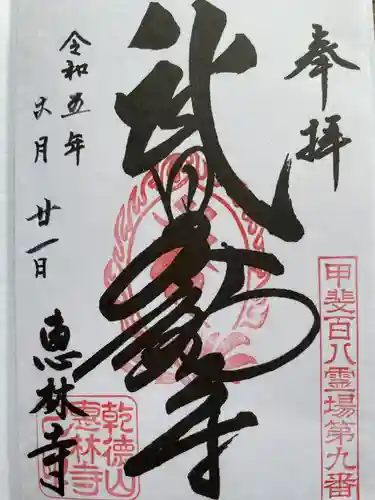 奉拝
甲斐百八霊場第九番
武田不動尊
令和五年
六月廿一日
恵林寺
乾徳山
惠林寺